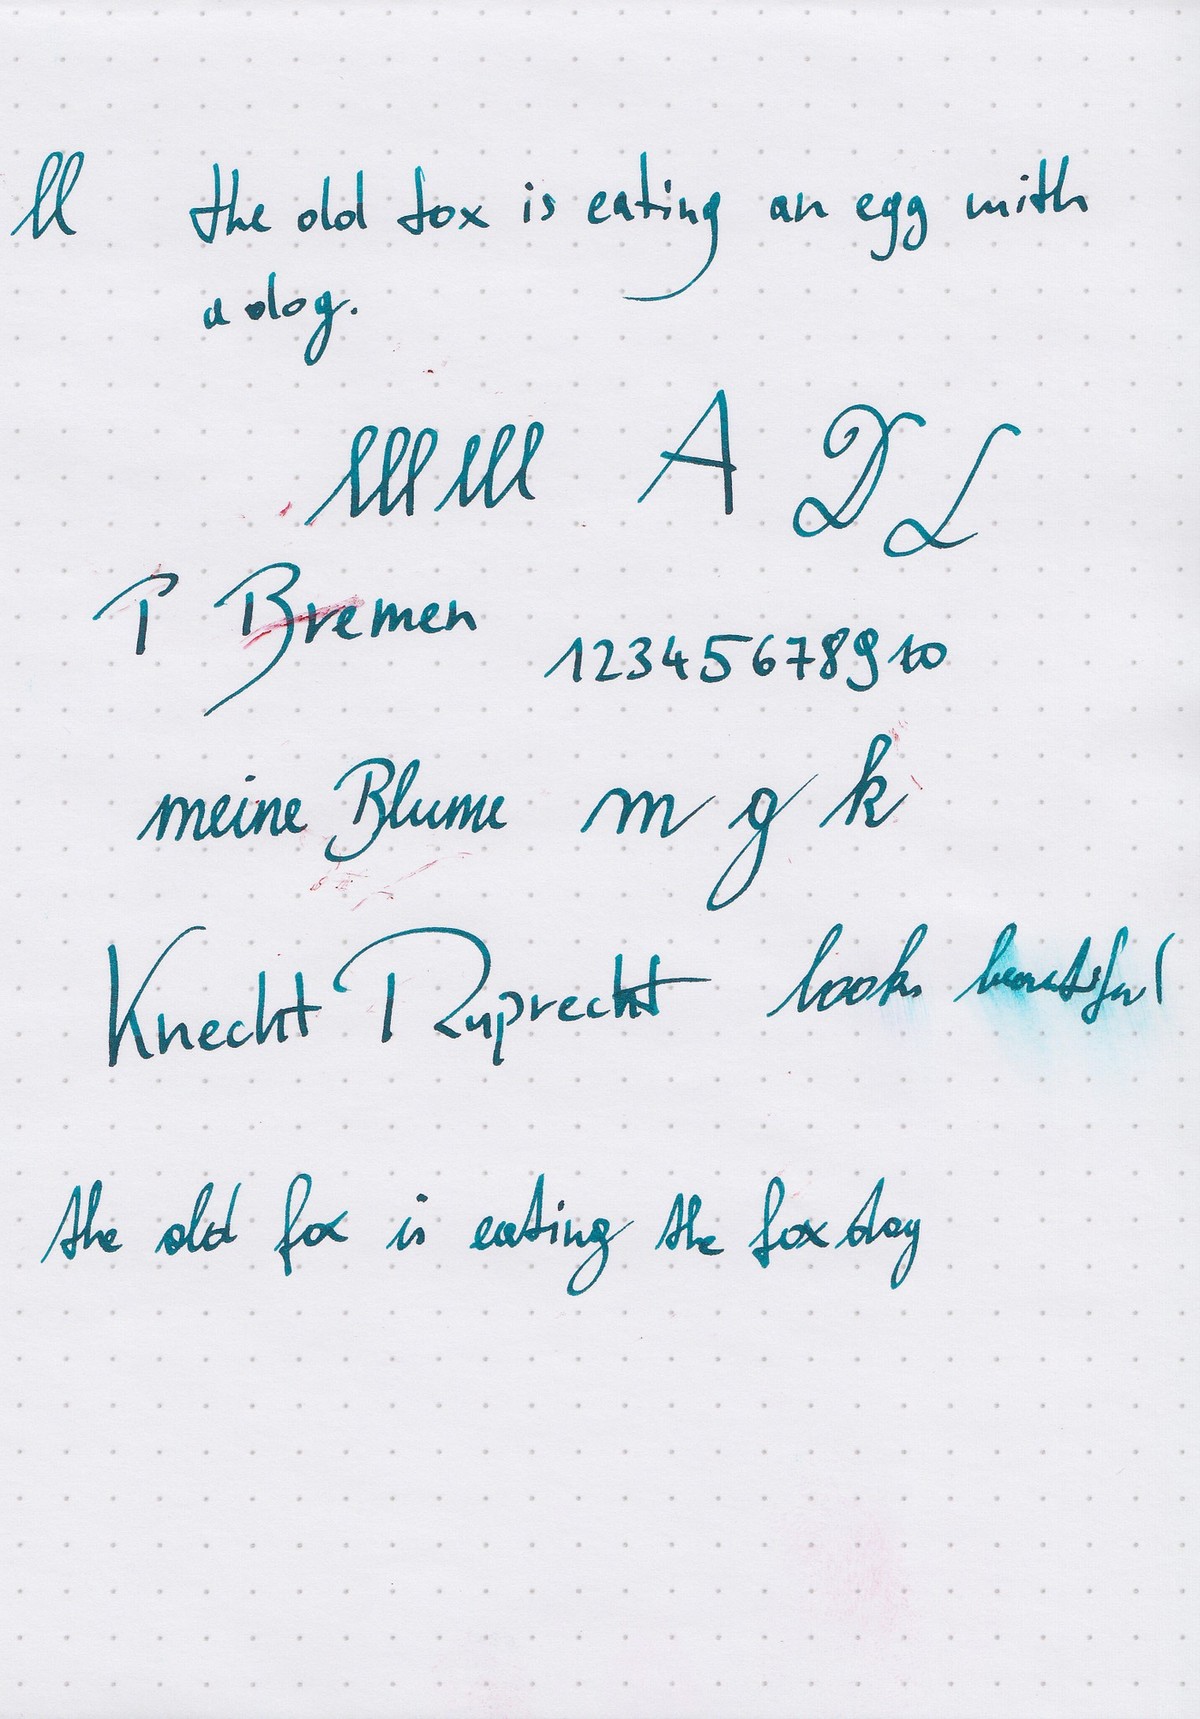 ll the old fox is eating an egg with
a dog.
lll lll A D L
T Bremen
12345678910
meine Blume m g k
Knecht Ruprecht looks beautiful
the old fox is eating the fox dog